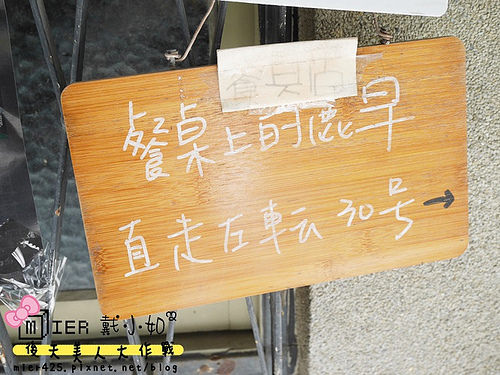 餐桌上的鹿早
直走左転30号→
MIER 戴小如
復夫美人大作戰
mier425.pixnet.net/blog